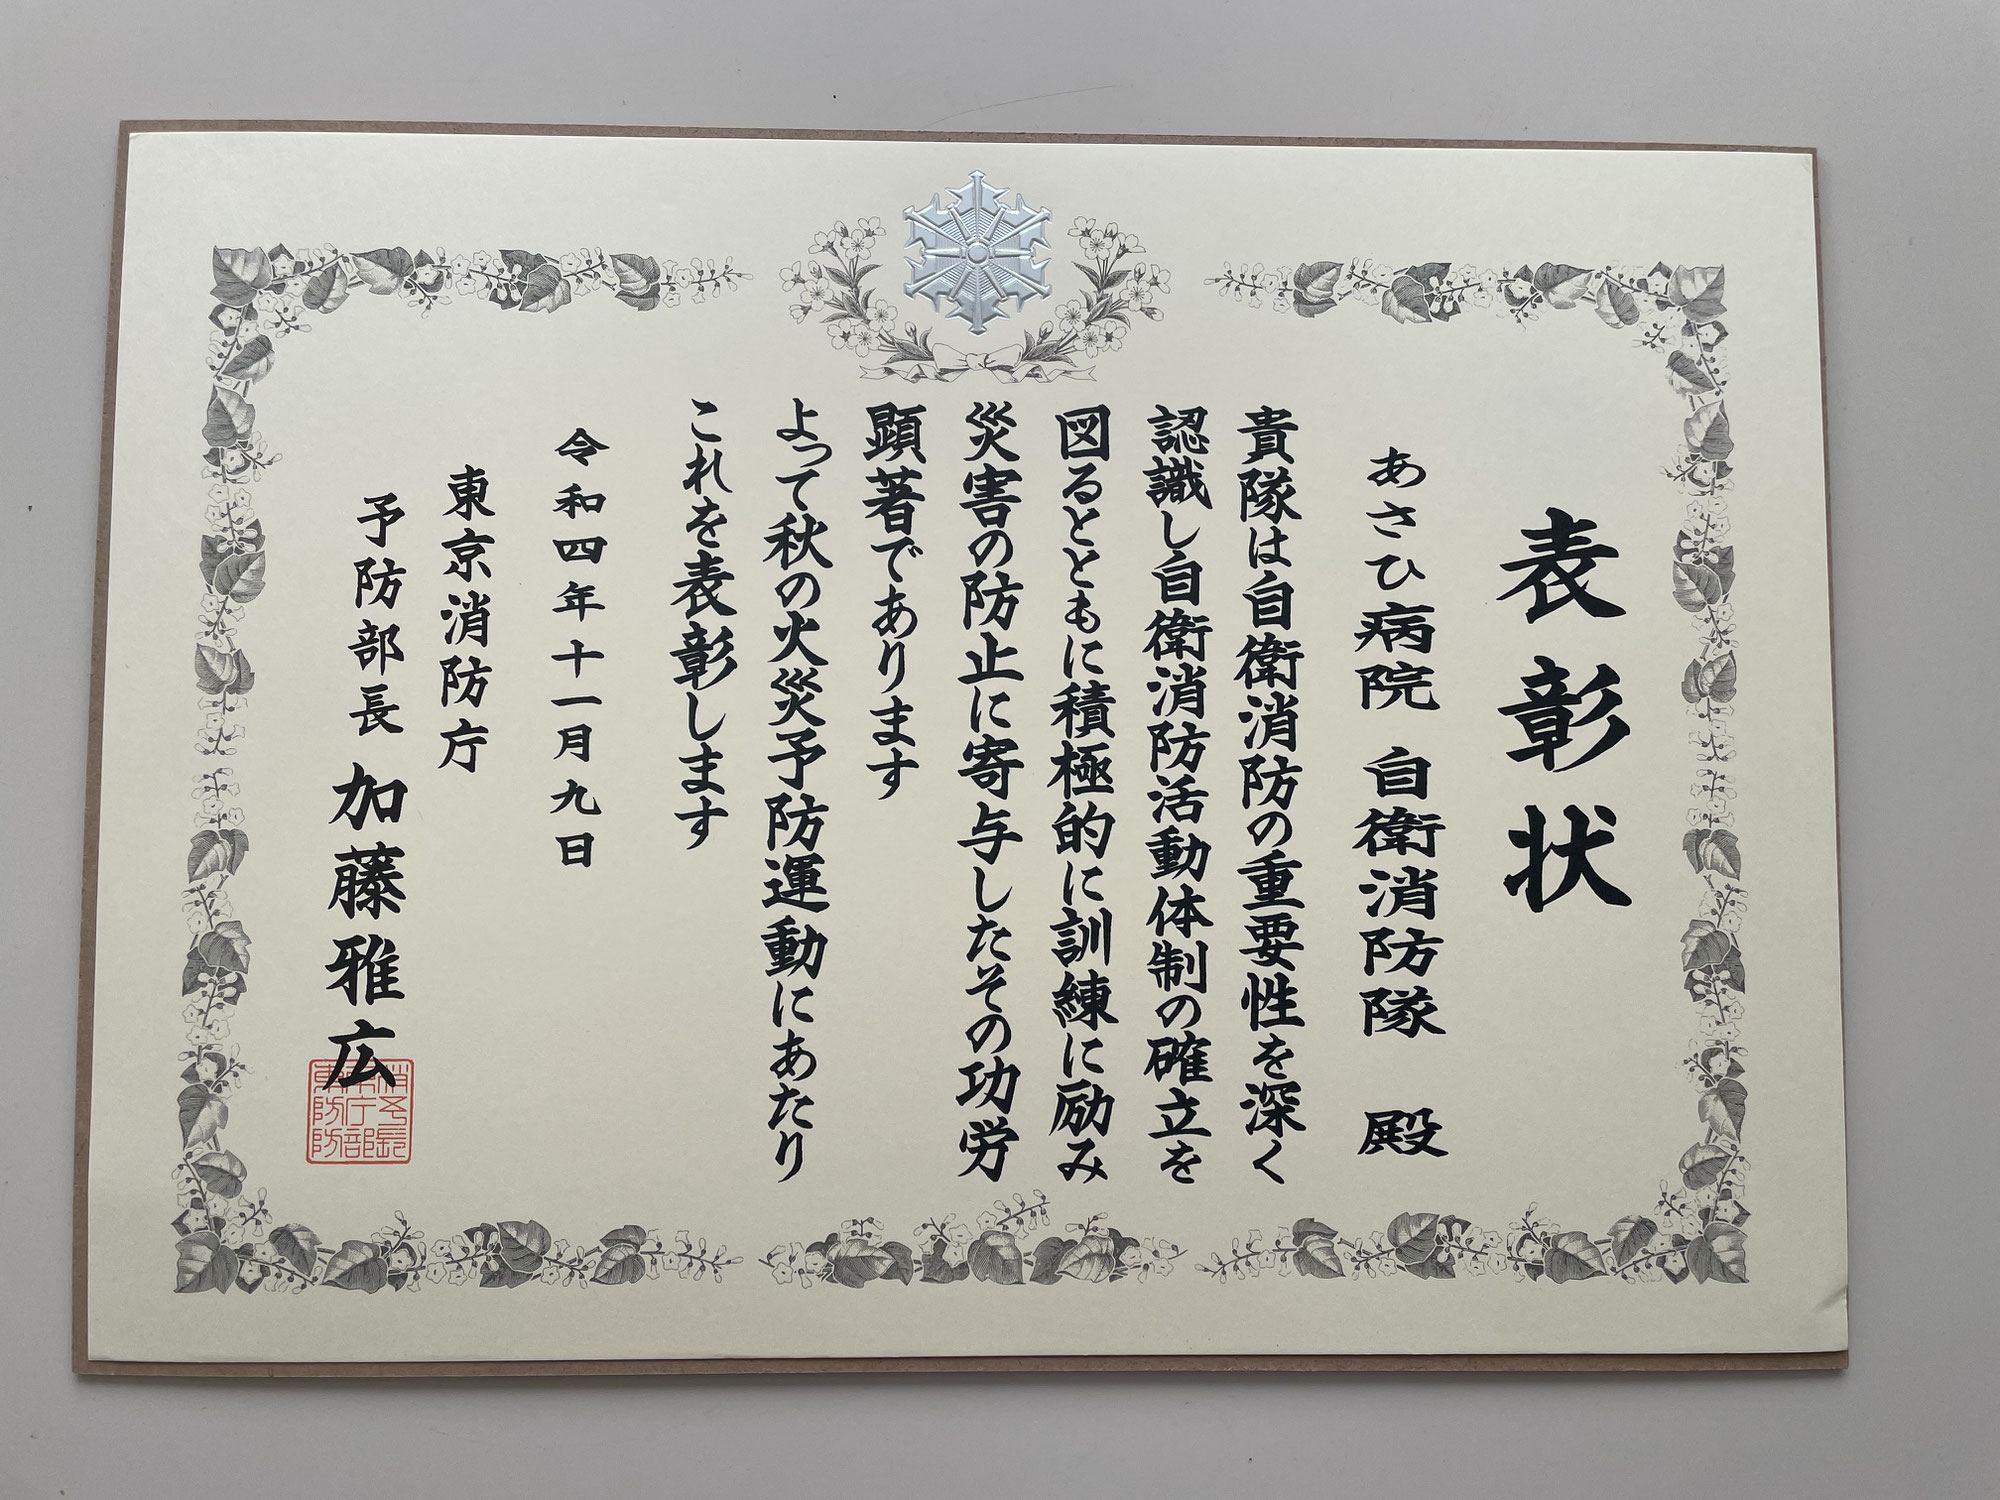 表彰状
あさひ病院 自衛消防隊 殿
貴隊は自衛消防の重要性を深く
認識し自衛消防活動体制の確立を
図るとともに積極的に訓練に励み
災害の防止に寄与したその功労
顕著であります
よって秋の火災予防運動にあたり
これを表彰します
令和四年十一月九日
東京消防庁
予防部長 加藤雅広